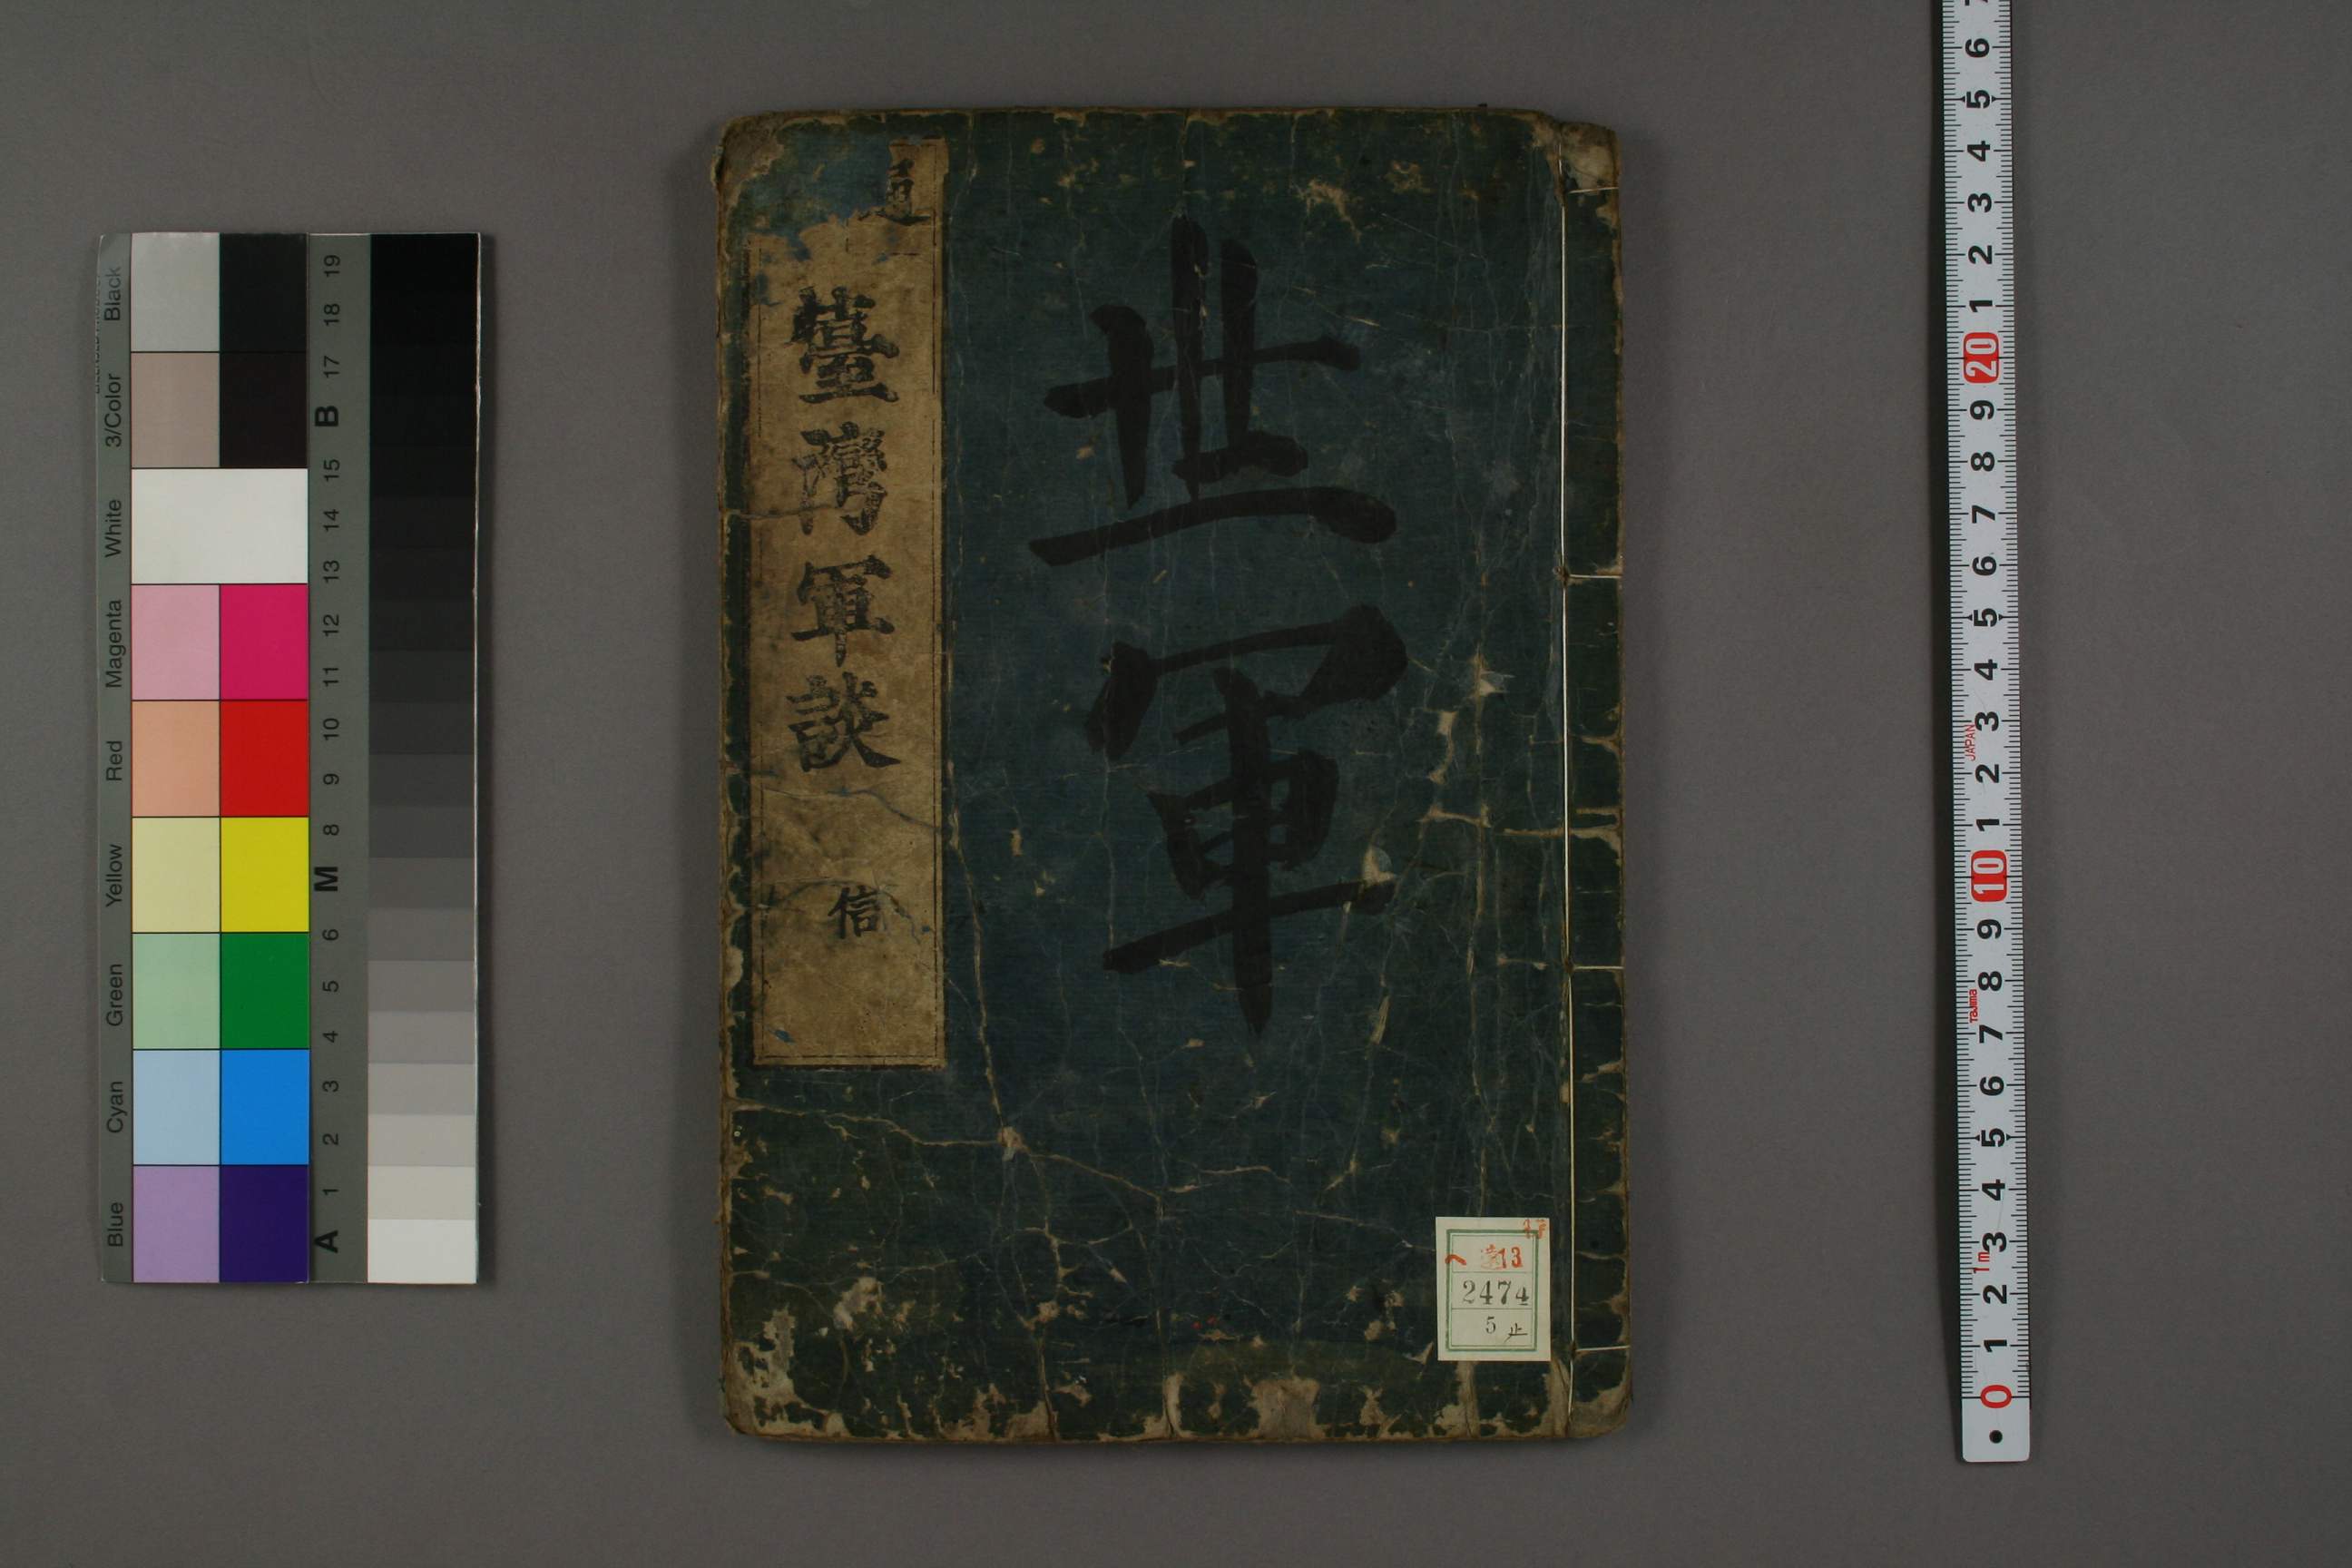 世軍
通
臺灣軍談
信
へ 13
2474
5 止
Black
3/Color
White
Magenta
Red
Yellow
Green
Cyan
Blue
19
18
17
B
15
14
13
12
11
10
9
8
M
6
5
4
3
2
1
A
6
5
4
3
2
1
20
9
8
7
6
5
4
3
JAPAN
2
1
10
9
8
Tajima
7
6
5
4
3
1m
2
1
0